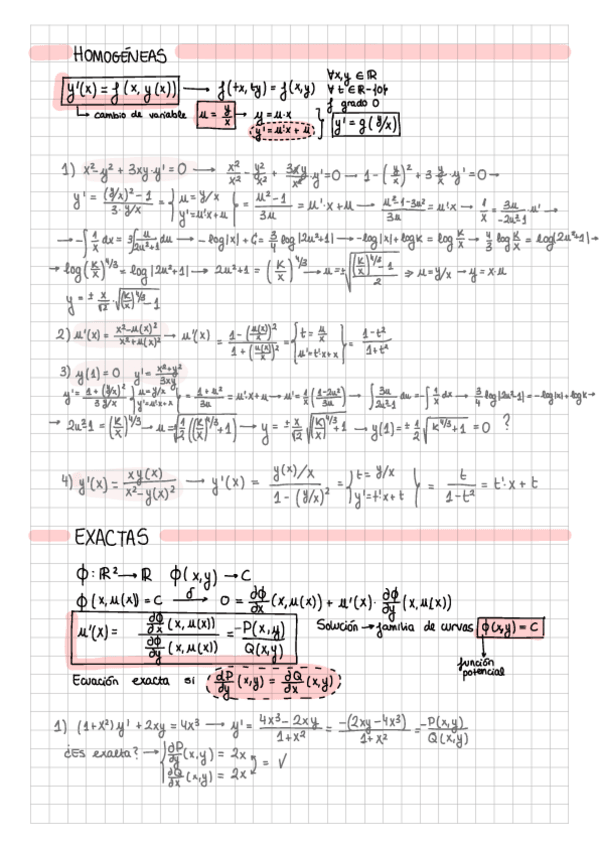 HOMOGÉNEAS
y'(x) = f(x, y(x)) → f(tx, ty) = f(x,y) ∀x,y ∈ ℝ
∀ t ∈ ℝ-{0}
f grado 0
↳ cambio de variable u = y/x → y = u·x
y' = u'x + u } y' = g(y/x)
1) x²-y² + 3xy·y' = 0 → x²/x² - y²/x² + 3xy/x² · y' = 0 → 1 - (y/x)² + 3 y/x · y' = 0 →
y' = ((y/x)² - 1)/(3·y/x) = { u = y/x  y' = u'x + u } = (u²-1)/3u = u'·x + u → (u²-1-3u²)/3u = u'x → 1/x = 3u/(-2u²-1) · u' →
→ -∫ 1/x dx = 3∫ u/(2u²+1) du → -log|x| + C = 3/4 log|2u²+1| → -log|x| + log k = log k/x → 4/3 log k/x = log|2u²+1| →
→ log (k/x)^4/3 = log|2u²+1| → 2u²+1 = (k/x)^4/3 → u = ±√(((k/x)^4/3 - 1)/2) ⇒ u = y/x → y = x·u
y = ± x/√2 · √((k/x)^4/3 - 1)
2) u'(x) = (x²-u(x)²)/(x²+u(x)²) → u'(x) = (1-(u(x)/x)²)/(1+(u(x)/x)²) = { t = u/x  u' = t'x + x } = (1-t²)/(1+t²)
3) y(1) = 0   y' = (x²+y²)/3xy
y' = (1+(y/x)²)/(3 y/x) = { u = y/x  y' = u'x + x } = (1+u²)/3u = u'x + u → u' = 1/x ((1-2u²)/3u) → ∫ 3u/(2u²-1) du = -∫ 1/x dx → 3/4 log|2u²-1| = -log|x| + log k →
→ 2u²-1 = (k/x)^4/3 → u = √(1/2((k/x)^4/3 + 1)) → y = ± x/√2 √((k/x)^4/3 + 1) → y(1) = ± 1/2 √(k^4/3 + 1) = 0 ?
4) y'(x) = xy(x)/(x²-y(x)²) → y'(x) = (y(x)/x)/(1-(y/x)²) = { t = y/x  y' = t'x + t } = t/(1-t²) = t'·x + t
EXACTAS
ϕ: ℝ² → ℝ   ϕ(x,y) → C
ϕ(x, u(x)) = C →δ 0 = ∂ϕ/∂x (x, u(x)) + u'(x) · ∂ϕ/∂y (x, u(x))
u'(x) = (∂ϕ/∂x (x, u(x)))/(∂ϕ/∂y (x, u(x))) = -P(x,y)/Q(x,y)   Solución → familia de curvas ϕ(x,y) = C
función
potencial
Ecuación exacta si ∂P/∂y (x,y) = ∂Q/∂x (x,y)
1) (1+x²) y' + 2xy = 4x³ → y' = (4x³-2xy)/(1+x²) = -(2xy-4x³)/(1+x²) = -P(x,y)/Q(x,y)
¿Es exacta? → { ∂P/∂y (x,y) = 2x
∂Q/∂x (x,y) = 2x = ✓